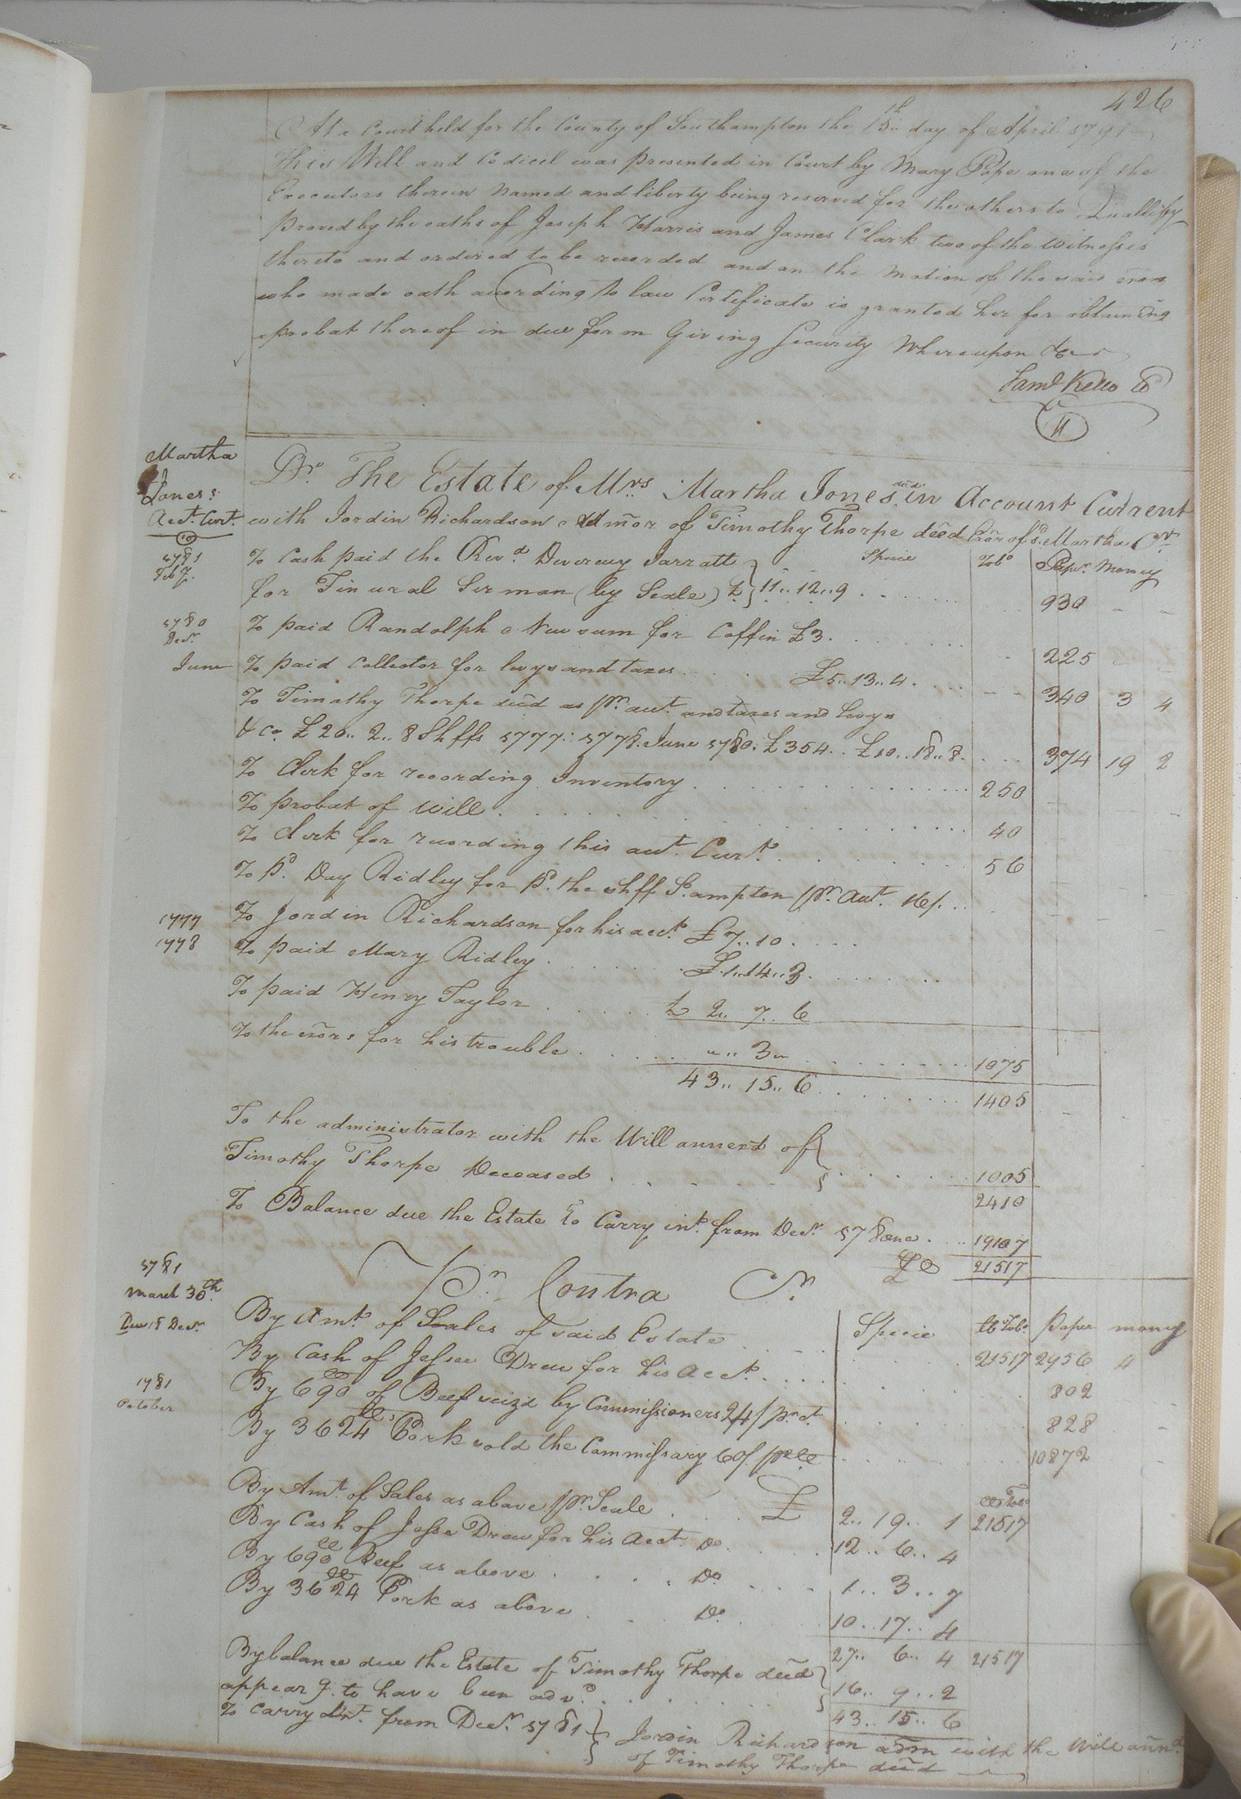 426
At a Court held for the County of Southampton the 15th day of April 1791
This Will and Codicil was presented in Court by Mary Pope one of the
Executors therein named and liberty being reserved for the others to Quallify
proved by the oaths of Joseph Harris and James Clark two of the Witnesses
thereto and ordered to be recorded and on the motion of the said
who made oath according to law Certificate is granted her for obtaining
probat thereof in due form Giving Security Whereupon &c
Saml Kello
Martha
Jones's
Acct. Curt.
Dr. The Estate of Mrs Martha Jones decd in Account Current
with Jordin Richardson Admor of Timothy Thorpe decd Exor of sd. Martha Cr
Specie Tobo Paper Money
1781 Feby. To Cash paid the Revd Deverey Jarratt
for Finural Sirman (by Scale) £ 11.. 12.. 9 930
1780 Decr. To paid Randolph Newsum for Coffin £3. 225
June To paid Collector for levys and taxes £5.. 13.. 4. 340 3 4
To Timothy Thorpe decd as pr. acct. and taxes and levys
& co £20.. 2.. 8 Shffs 1777: 1778. June 1780: £354.. £10.. 18.. 8. 374 19 2
To Clerk for recording Inventory 250
To probat of Will 40
To Clerk for recording this acct. Curt. 56
To pd. Day Ridley for pd. the shff S.ampton pr. Acct. 16/.
1777 To Jordin Richardson for his acct. £7..10.
1778 To paid Mary Ridley £1..14..3.
To paid Henry Taylor £ 2.. 7.. 6
To the exors for his trouble .. 3.. 1075
43.. 15.. 6 1405
To the administrator with the Will annexd of
Timothy Thorpe Deceased 1005
2410
To Balance due the Estate to Carry int. from Decr. 178one 19107
21517
Pr. Contra Cr.
Specie lb Tobo Paper money
1781
March 30th By Amt. of Sales of said Estate 21517 2956 4
Decr. By Cash of Jessee Drew for his Acct. 802
By 690 of Beef seizd by Commissioners 24/ pr. ct. 828
1781
October By 3624 Pork sold the Commissary 60/ pr 10872
By Amt. of Sales as above pr. Scale £ 2.. 19.. 1 21517
By Cash of Jesse Drew for his acct. Do 12.. 6.. 4
By 690 Beef as above Do 1.. 3.. 7
By 3624 Pork as above Do 10.. 17.. 4
27.. 6.. 4 21517
By balance due the Estate of Timothy Thorpe decd
appearg. to have been advd. 16.. 9.. 2
to carry Int. from Decr. 1781 43.. 15.. 6
Jordin Richardson adm with the Will annd
of Timothy Thorpe decd